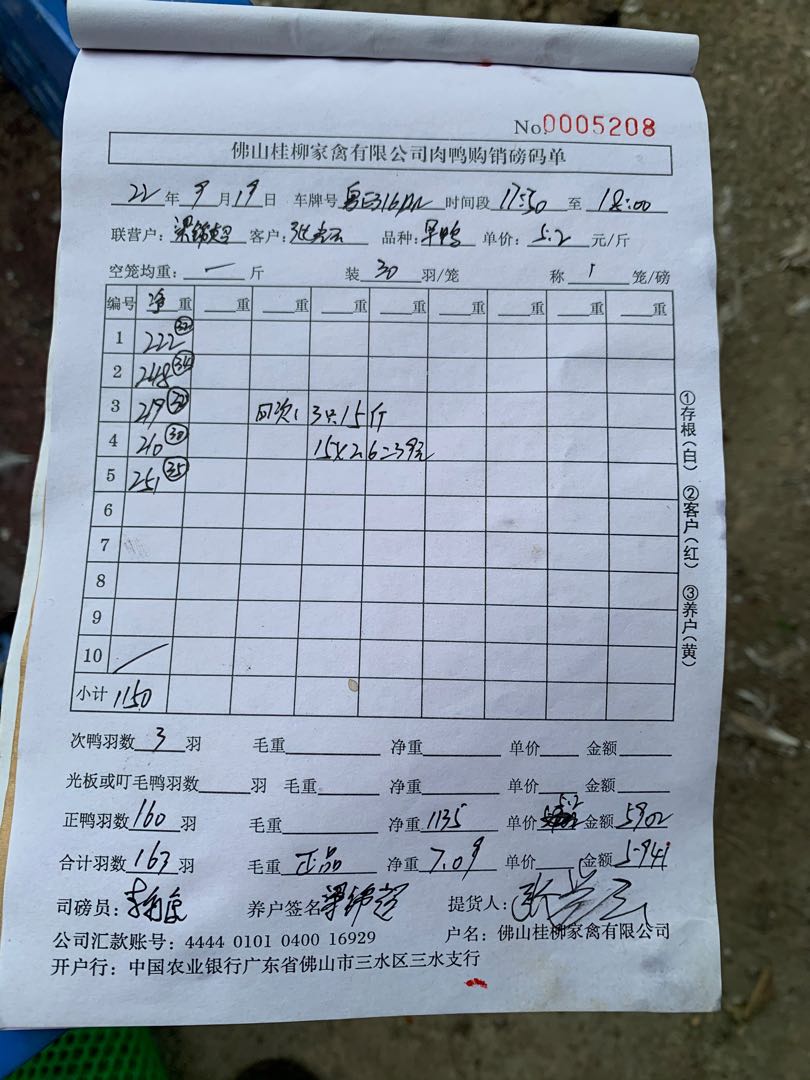 No. 0005208
佛山桂柳家禽有限公司肉鸭购销磅码单
22 年 9 月 19 日 车牌号 时间段 17:50 至 18:00
联营户: 客户: 品种: 旱鸭 单价: 5.2 元/斤
空笼均重: — 斤 装 30 羽/笼 称 1 笼/磅
编号 净重 重 重 重 重 重 重 重
1 222 32
2 248 34
3 219 回次: 3只15斤
4 210 30 15×2.6=39元
5 251 35
6
7
8
9
10
小计 1150
次鸭羽数 3 羽 毛重 净重 单价 金额
光板或叮毛鸭羽数 羽 毛重 净重 单价 金额
正鸭羽数 160 羽 毛重 净重 1135 单价 5.2 金额 5902
合计羽数 163 羽 毛重 正品 净重 7.09 单价 金额 5941
司磅员: 养户签名 提货人:
公司汇款账号: 4444 0101 0400 16929 户名: 佛山桂柳家禽有限公司
开户行: 中国农业银行广东省佛山市三水区三水支行
①存根(白) ②客户(红) ③养户(黄)